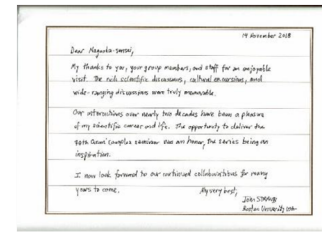 14 November 2018
Dear Nagaoka-sensei,
My thanks to you, your group members, and staff for an enjoyable
visit. The rich scientific discussions, cultural excursions, and
wide-ranging discussions were truly memorable.
Our interactions over nearly two decades have been a pleasure
of my scientific career and life. The opportunity to deliver the
Complex Seminar was an honor, the series being an
inspiration.
I now look forward to our continued collaborations for many
years to come. My very best,
John
Boston University